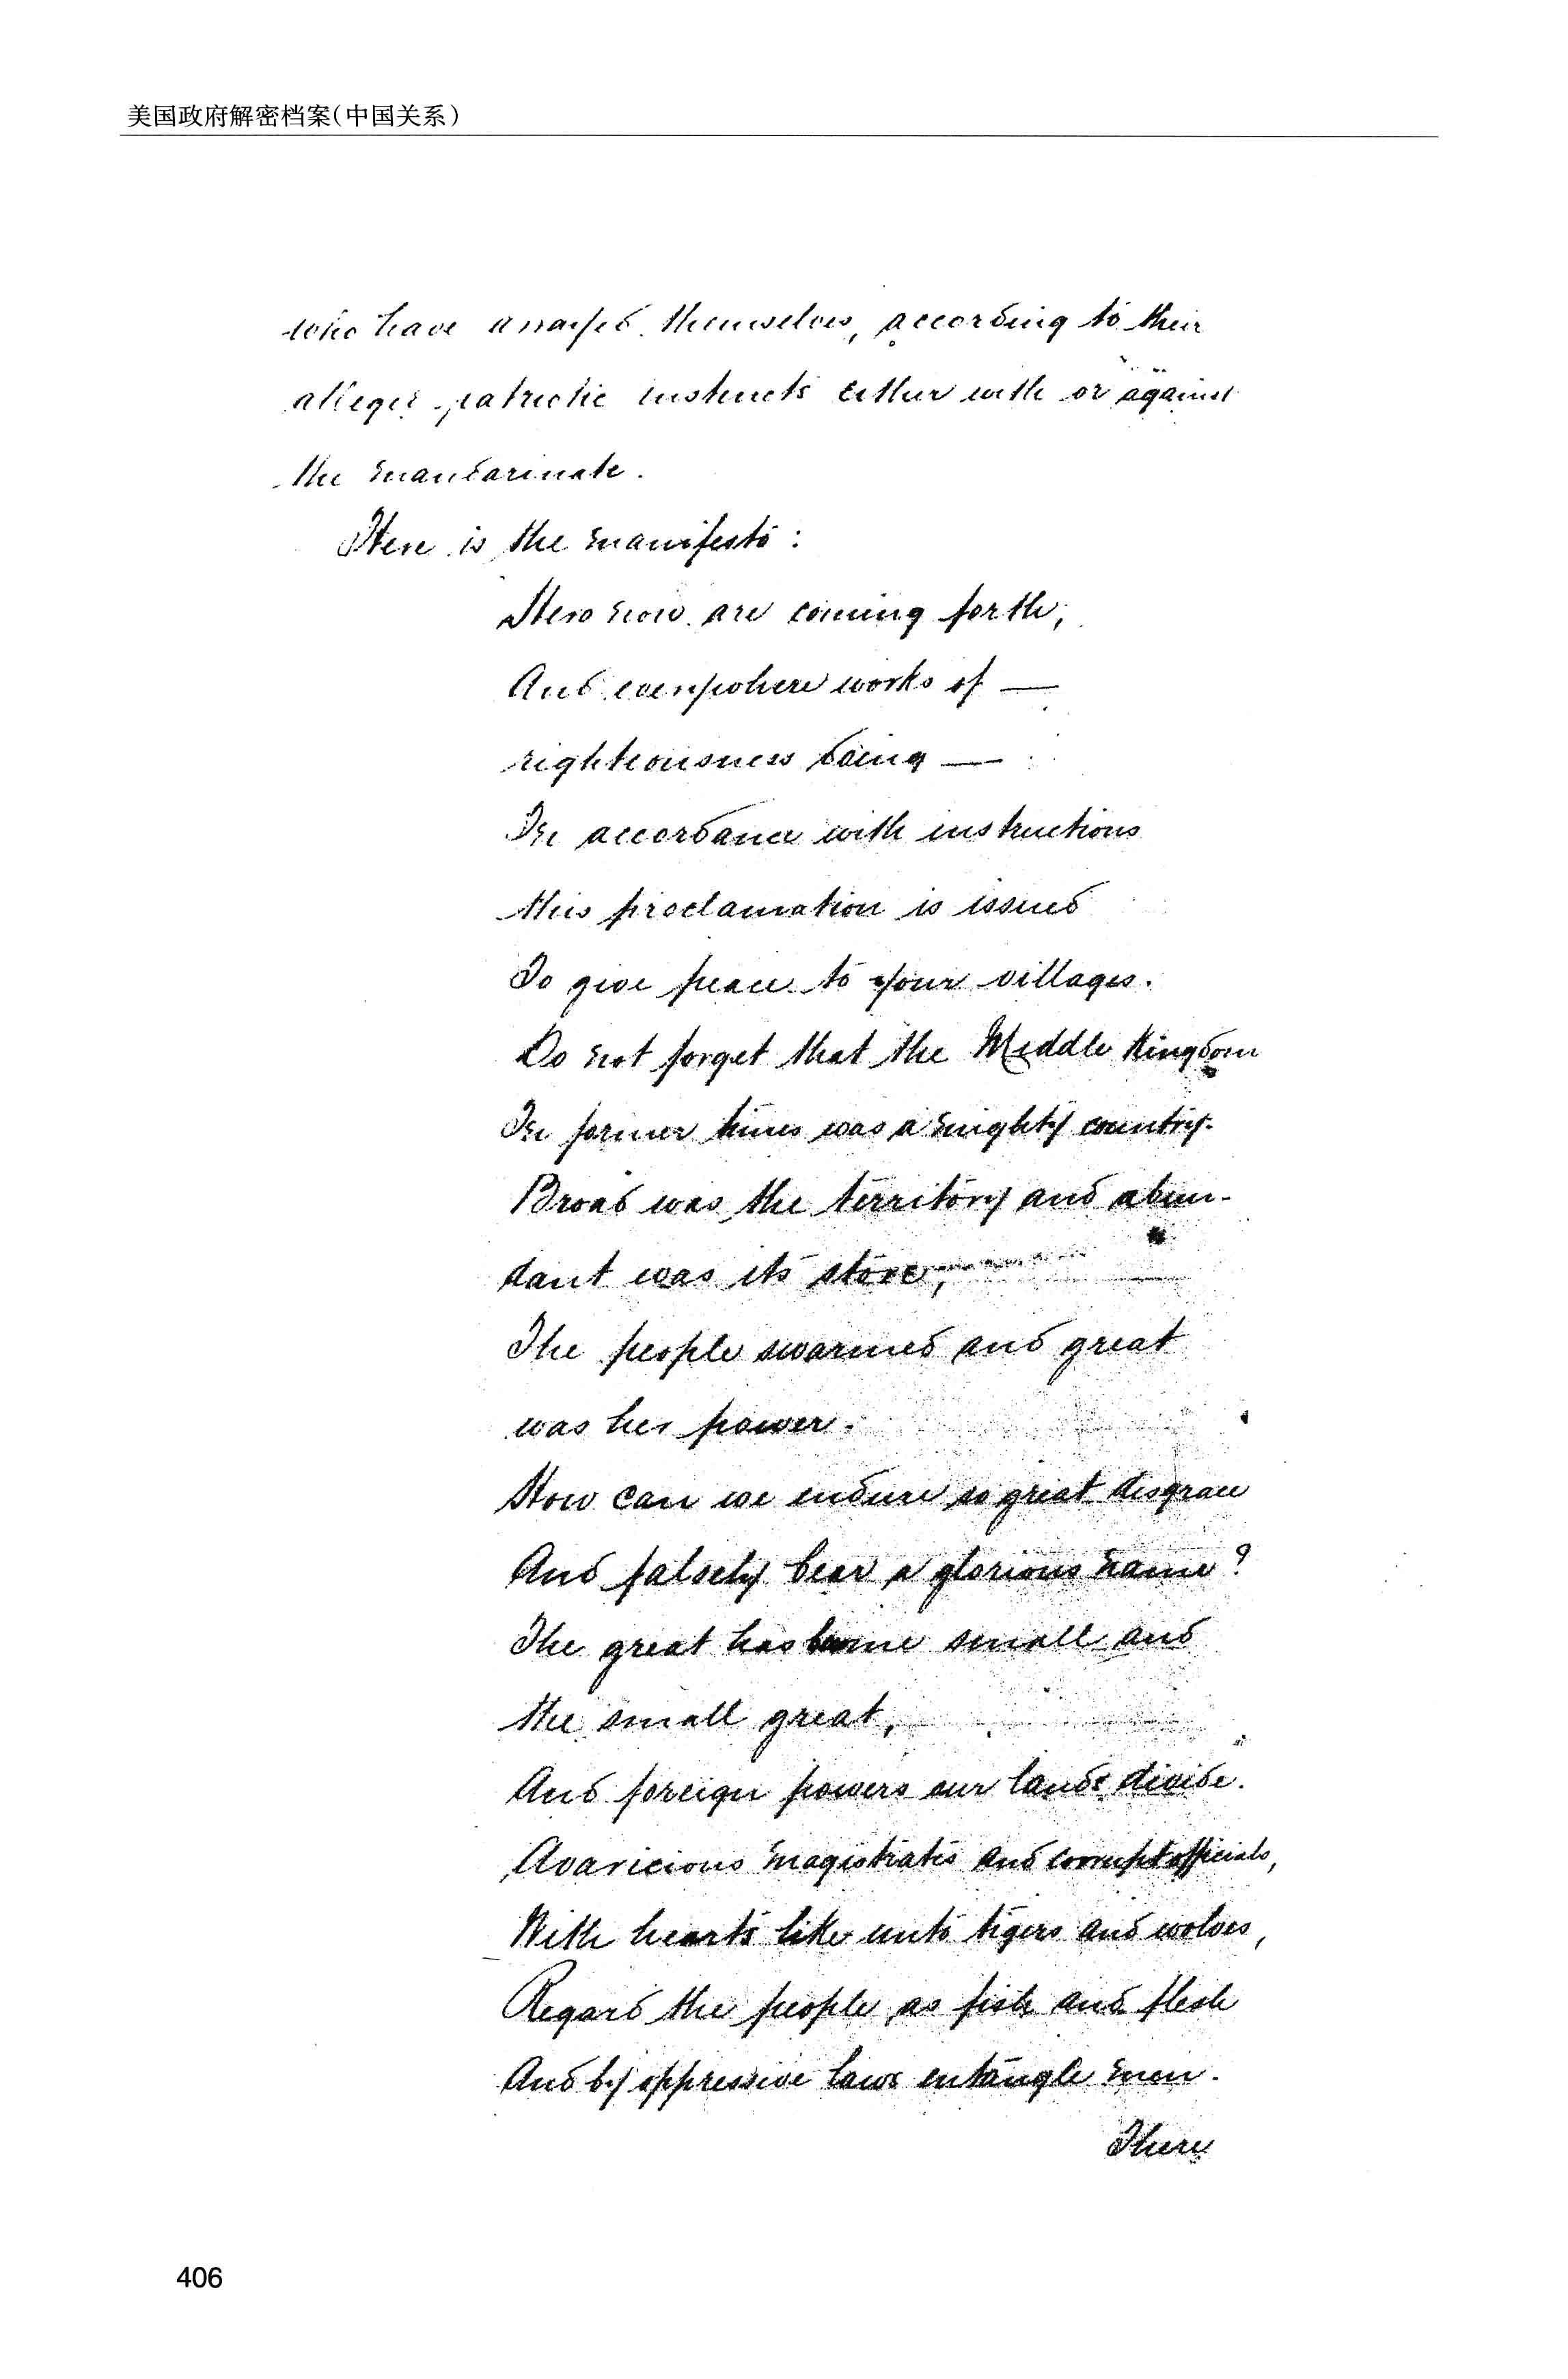 美国政府解密档案(中国关系)
who have arrayed themselves, according to their
alleged patriotic instincts either with or against
the mandarinate.
Here is the manifesto:
Hero now are coming forth,
And everywhere works of —
righteousness doing —
In accordance with instructions
this proclamation is issued
To give peace to your villages.
Do not forget that the Middle Kingdom
In former times was a mighty country.
Broad was the territory and abun-
dant was its store,
The people swarmed and great
was her power.
How can we endure so great disgrace
And falsely bear a glorious name?
The great has become small and
the small great,
And foreign powers our lands divide.
Avaricious magistrates and corrupt officials,
With hearts like unto tigers and wolves,
Regard the people as fish and flesh
And by oppressive laws entangle men.
There
406